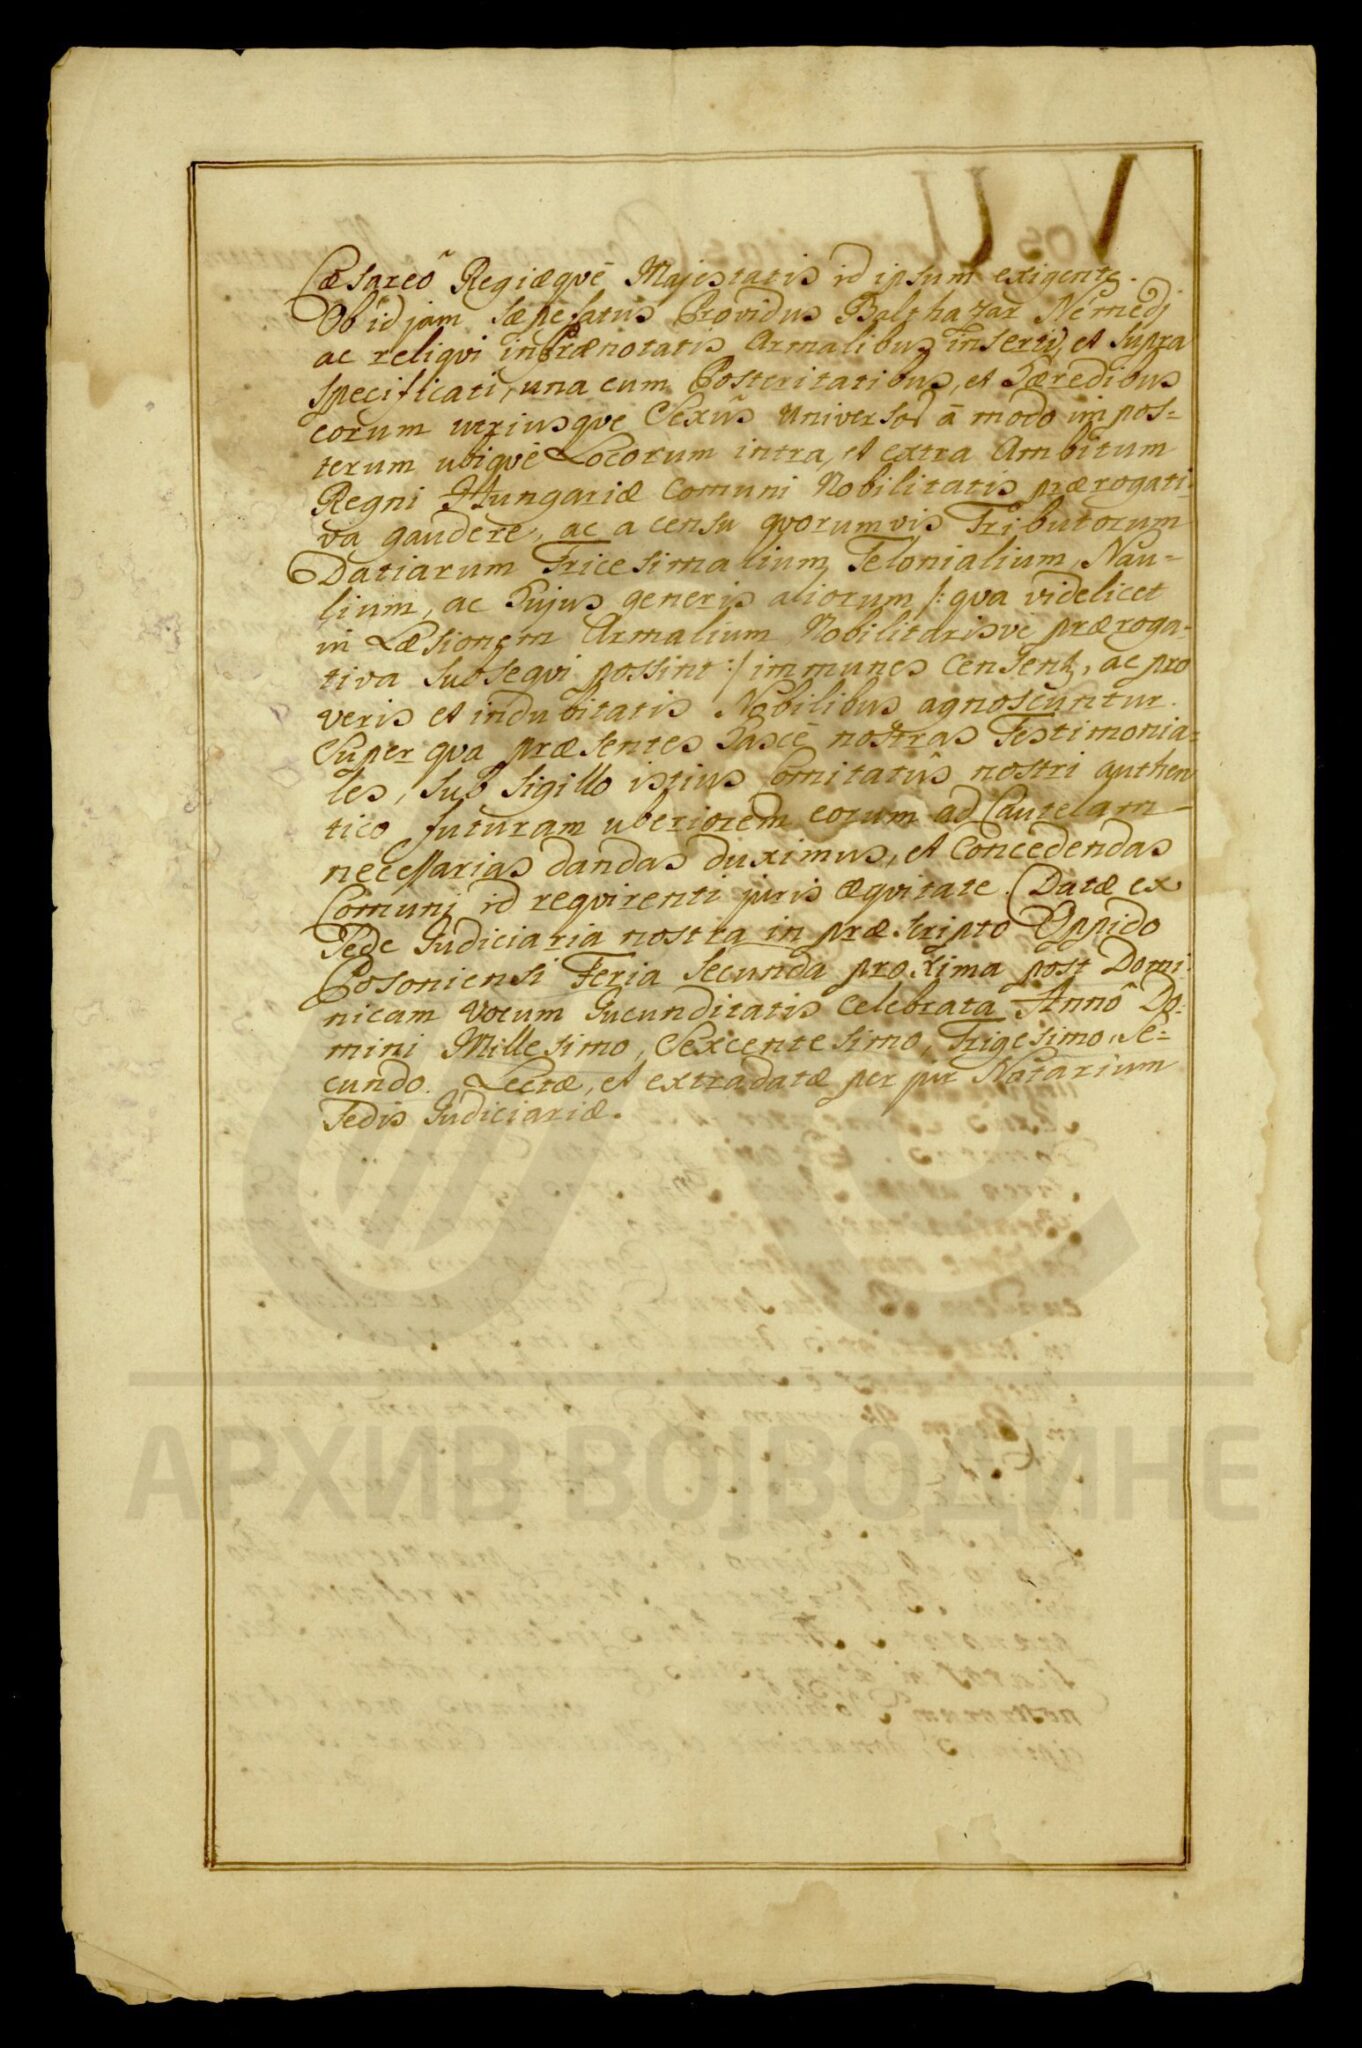 Cæsareô Regiæqvè Majestatis id ipsum exigente.
Ob id jam sæpefatus Providus Balthazar Némedj
ac reliqvi in Prænotatis Armalibus inserti, et supra
specificati, una cum Posteritatibus, et Hæredibus
eorum utriusqve Sexûs Universos â modo im pos=
terum ubiqvè Locorum intra, et extra Ambitum
Regni Hungariæ Comuni Nobilitatis prærogati=
va gaudere, ac a censu qvorumvis Tributorum
Datiarum Tricesimalium, Telonialium, Nau=
lium, ac hujus generis aliorum /: qva videlicet
in Læsionem Armalium Nobilitarisve præroga=
tiva subseqvi possint :/ immunes Censent, ac pro
veris et indubitatis Nobilibus agnoscuntur.
Super qva præsentes hasce nostras Testimonia=
les, sub sigillo istius Comitatûs nostri authen
tico futuram uberiorem eorum ad Cautelam
necessarias dandas duximus, et Concedendas
Comuni id reqvirenti juris æqvitate. Datæ ex
Sede Judiciaria nostra in præscripto Oppido
Posoniensi Feria Secunda proxima post Domi
nicam Vocum Jucunditatis Celebrata Annô Do=
mini Millesimo, Sexcentesimo, Trigesimo, Se=
cundo. Lectæ, et extradatæ per jur Notarium
Sedis Judiciariæ.
АРХИВ ВОЈВОДИНЕ